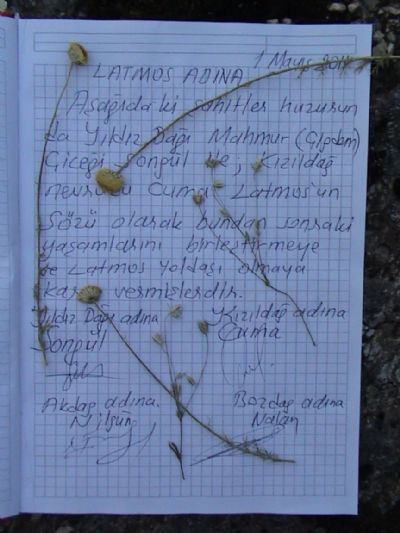 1 Mayıs
LATMOS ADINA
Aşağıdaki şahitler huzurun
da Yıldız Dağı Mahmur
Çiçeği Songül ile, Kızıldağ
nevruzu Cuma Latmos'un
sözü olarak bundan sonraki
yaşamlarını birleştirmeye
ve Latmos Yoldaşı olmaya
karar vermişlerdir.
Yıldız Dağı adına Kızıldağ adına
Songül Cuma
Akdağ adına Bozdağ adına
Nilgün Nalan